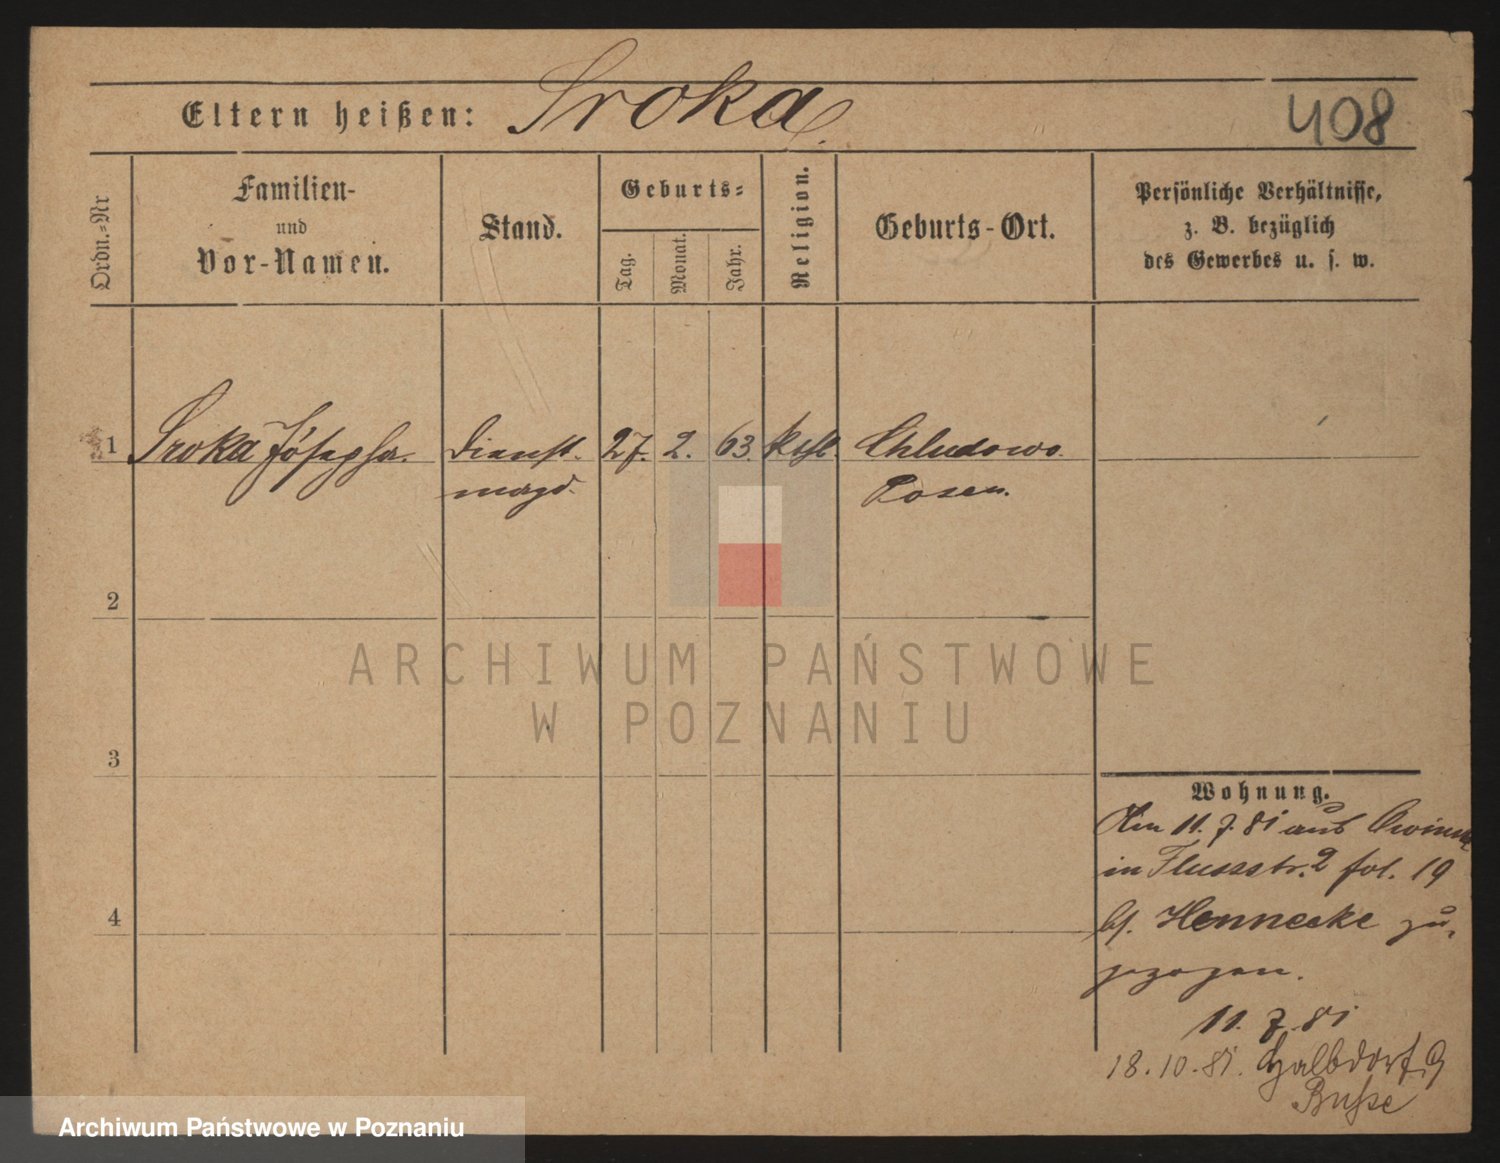 Eltern heißen: Sroka
408
Ordn.-Nr
Familien-
und
Vor-Namen.
Stand.
Geburts-
Tag.
Monat.
Jahr.
Religion.
Geburts-Ort.
Persönliche Verhältnisse,
z. B. bezüglich
des Gewerbes u. s. w.
1 Sroka Jósepha. Dienst- 27. 2. 63. kthl. Chludowo
magd. Posen.
2
3
4
Wohnung.
Am 11. 7. 81 aus
in Flussstr. 2 fol. 19
bj. Hennecke zu-
gezogen.
11. 7. 81
18. 10. 81. Halbdorf. 9
Busse
ARCHIWUM PAŃSTWOWE
W POZNANIU
Archiwum Państwowe w Poznaniu